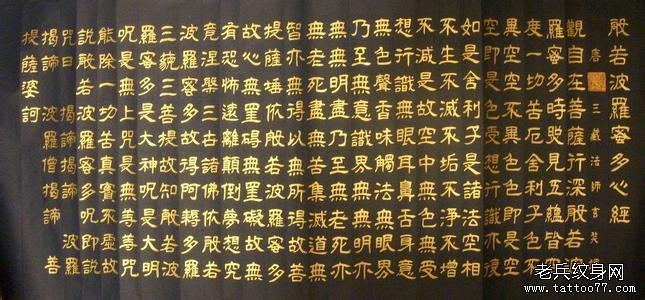 般若波羅蜜多心經
唐三藏法師玄奘譯
觀自在菩薩行深般若波
羅蜜多時照見五蘊皆空
度一切苦厄舍利子色不
異空空不異色色即是空
空即是色受想行識亦復
如是舍利子是諸法空相
不生不滅不垢不淨不增
不減是故空中無色無受
想行識無眼耳鼻舌身意
無色聲香味觸法無眼界
乃至無意識界無無明亦
無無明盡乃至無老死亦
無老死盡無苦集滅道無
智亦無得以無所得故菩
提薩埵依般若波羅蜜多
故心無罣礙無罣礙故無
有恐怖遠離顛倒夢想究
竟涅槃三世諸佛依般若
波羅蜜多故得阿耨多羅
三藐三菩提故知般若波
羅蜜多是大神呪是大明
呪是無上呪是無等等呪
能除一切苦真實不虛故
說般若波羅蜜多呪即說
呪曰 揭諦揭諦 波羅
揭諦 波羅僧揭諦 菩
提薩婆訶
老兵纹身网
www.tattoo77.com